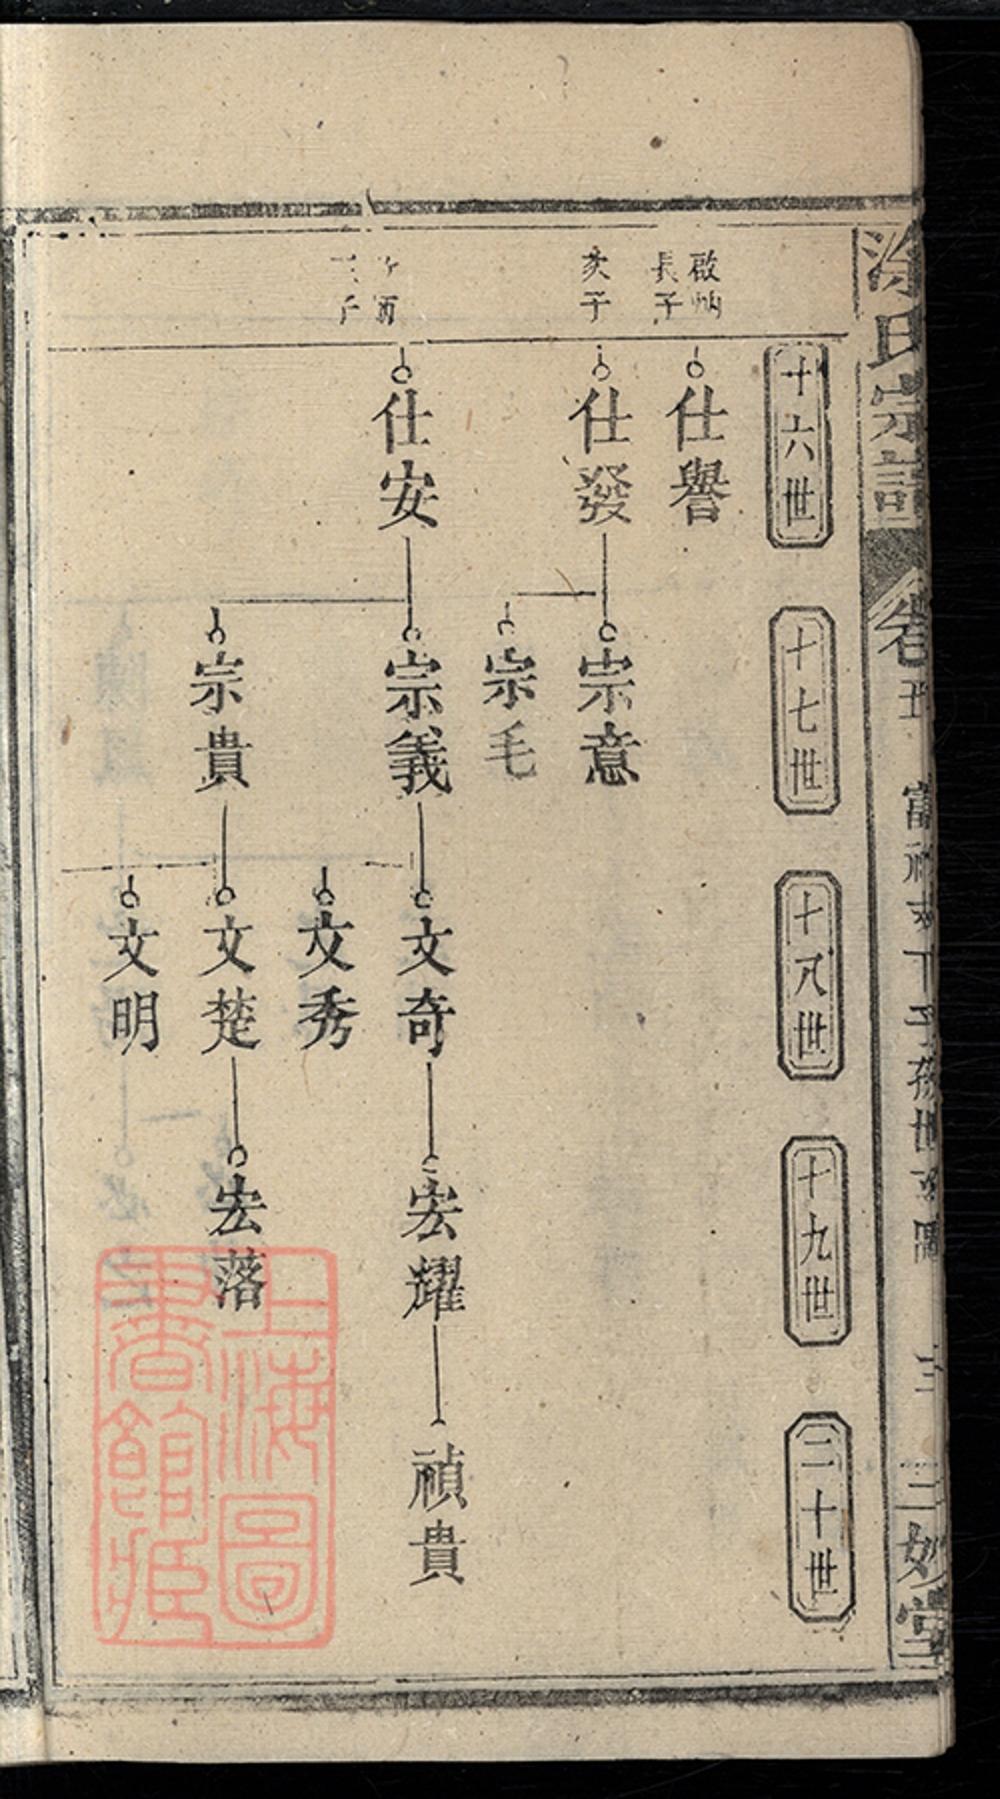 氏宗譜
卷
三
三妙堂
十六世
十七世
十八世
十九世
二十世
啟
長子
仕譽
次子
仕發
宗意
宗毛
仕安
宗義
宗貴
文奇
文秀
文楚
文明
宏耀
宏落
禎貴
上海圖
書館藏